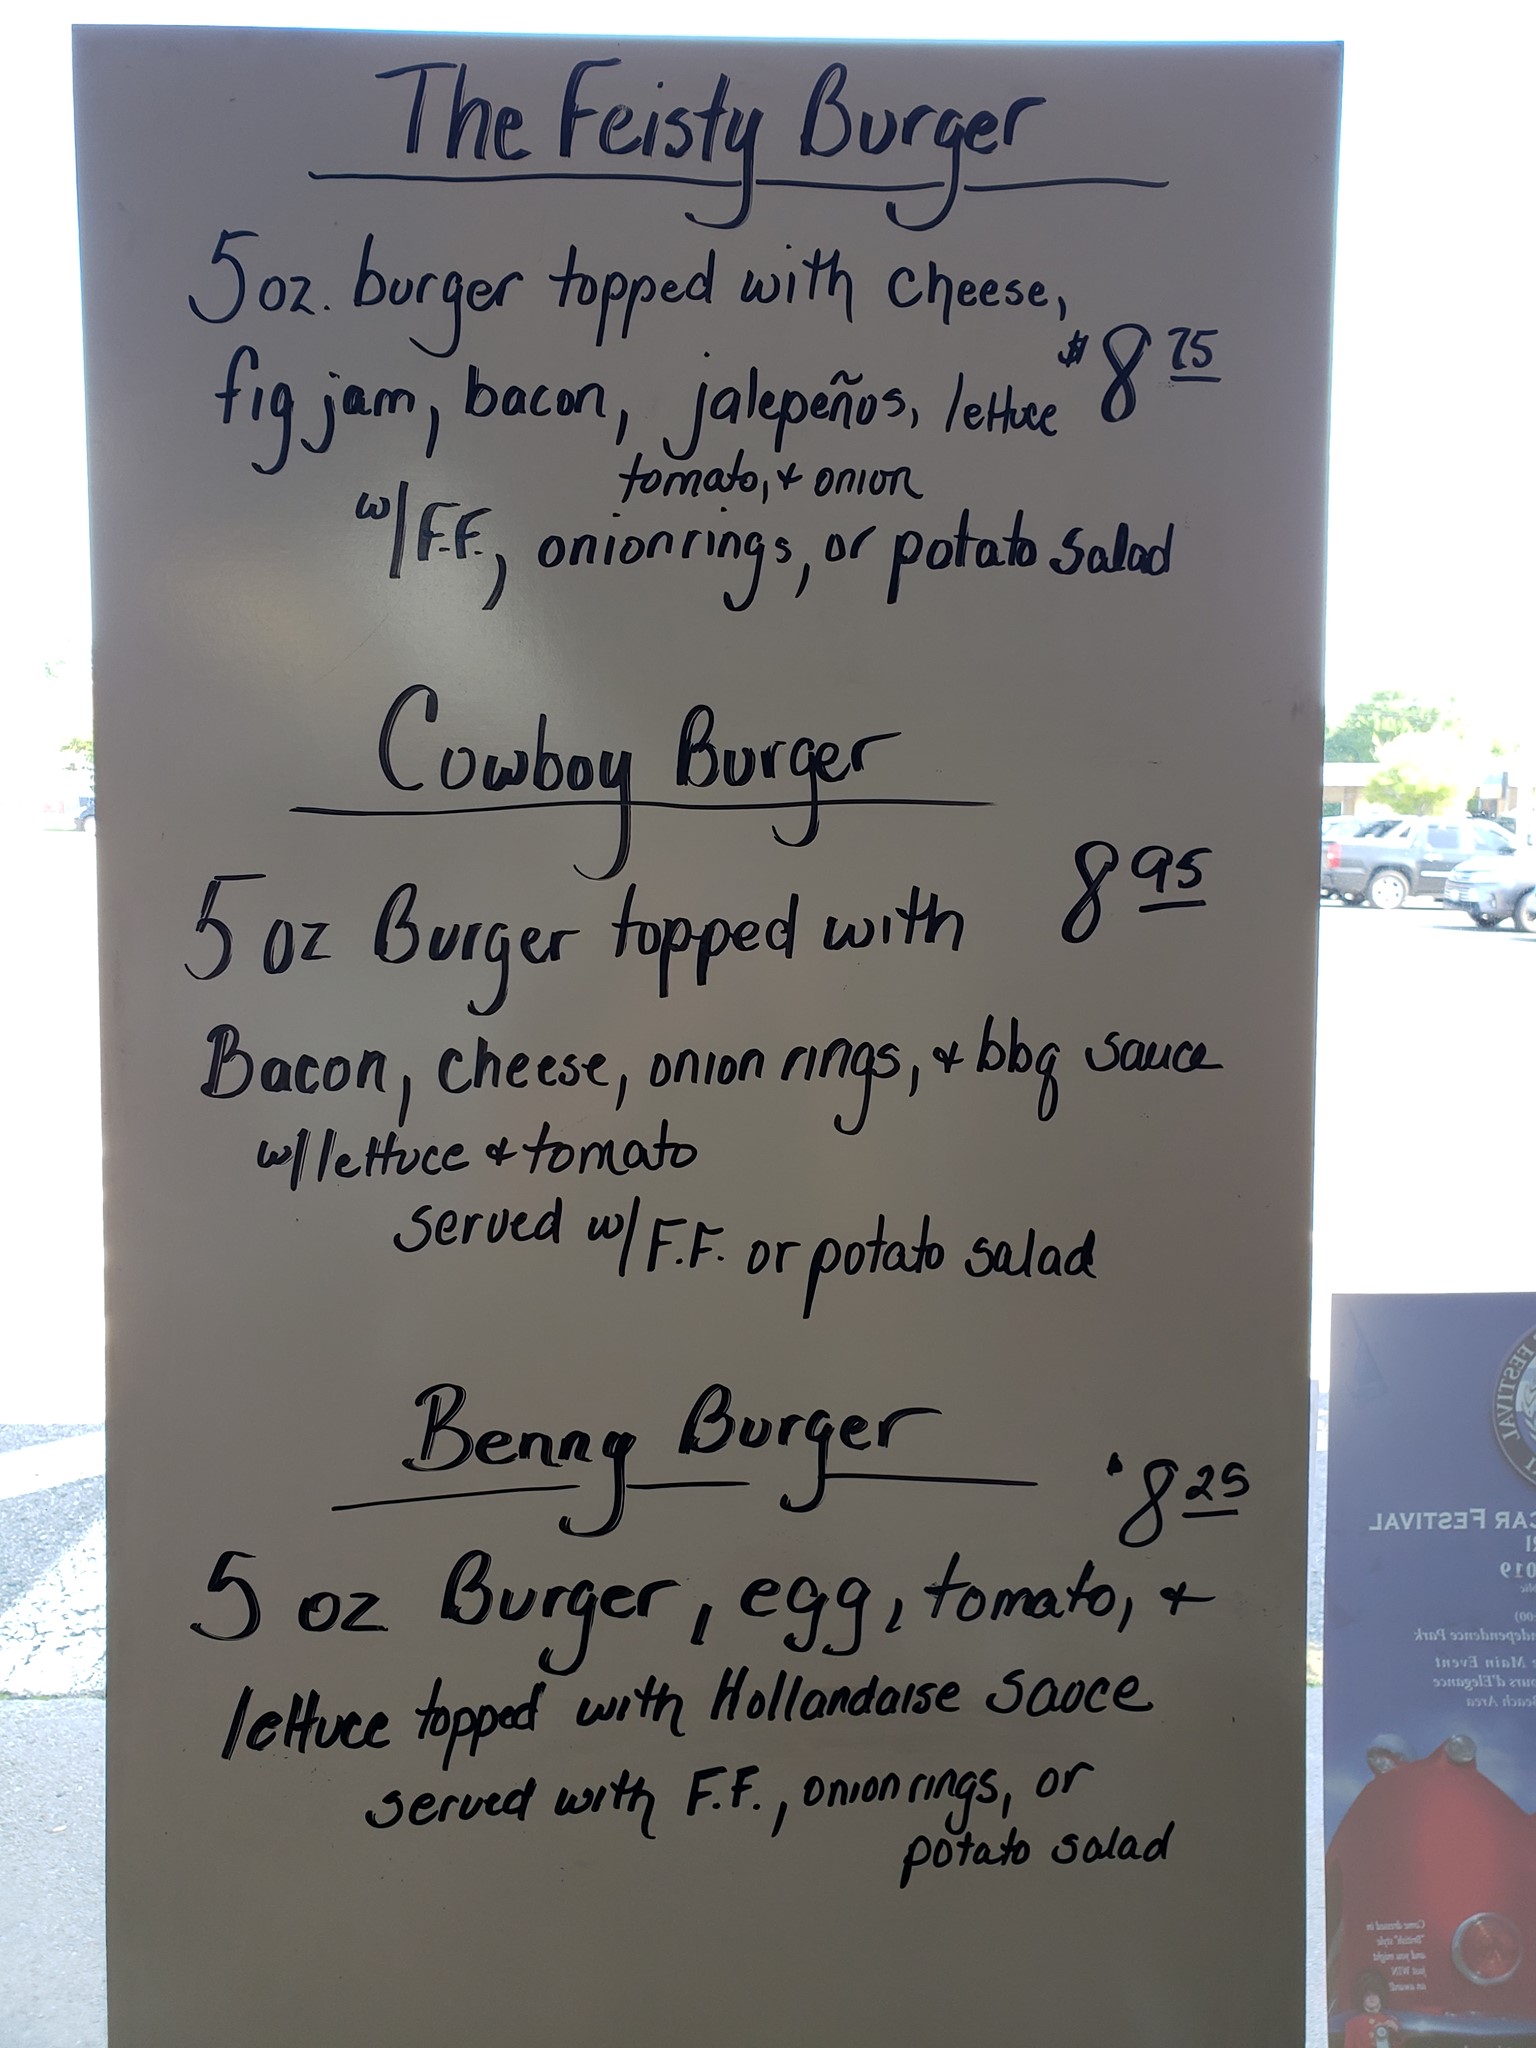 The Feisty Burger
5 oz. burger topped with cheese,
$8 75
fig jam, bacon, jalepeños, lettuce
tomato, & onion
w/ F.F., onion rings, or potato salad
Cowboy Burger
8 95
5 oz Burger topped with
Bacon, cheese, onion rings, & bbq sauce
w/ lettuce & tomato
served w/ F.F. or potato salad
Benny Burger
$8 25
5 oz Burger, egg, tomato, &
lettuce topped with Hollandaise Sauce
served with F.F., onion rings, or
potato salad
FESTIVAL
CAR FESTIVAL
RI
2019
Independence Park
Main Event
d'Elegance
Beach Area
Come dressed in
"British" style
and you might
just WIN
an award!